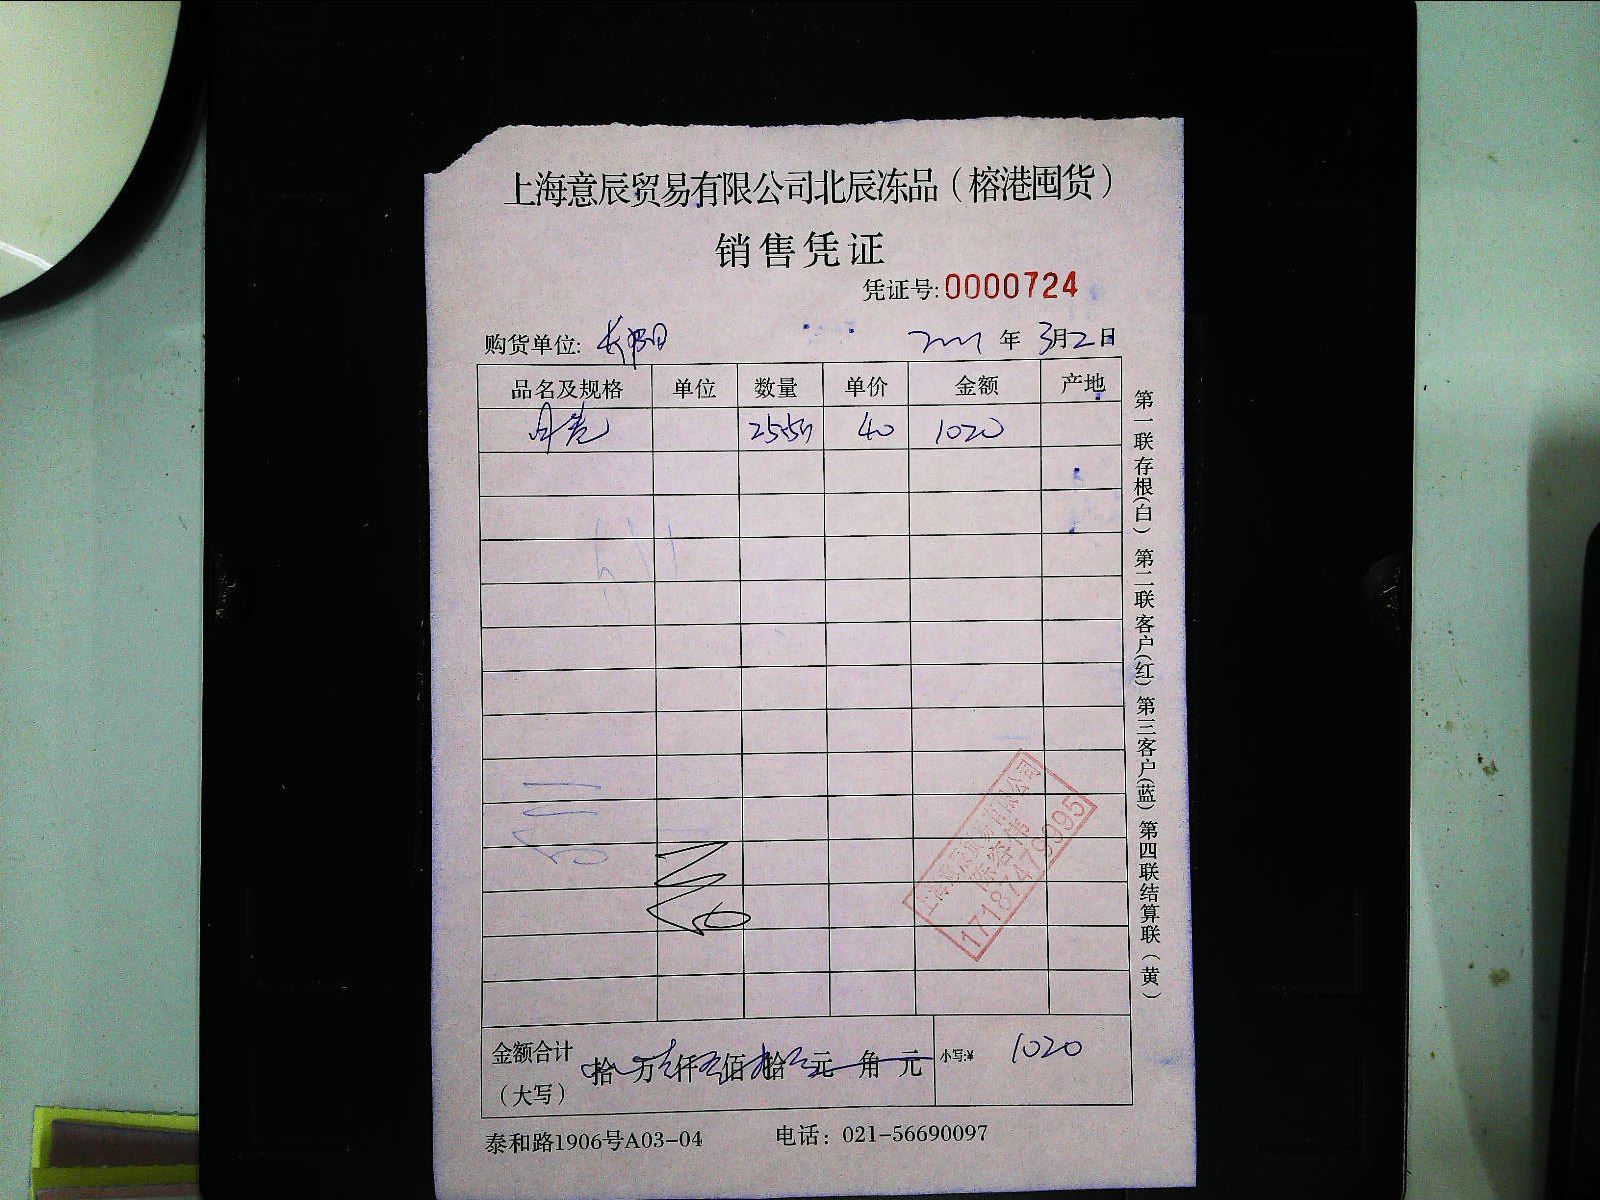 上海意辰贸易有限公司北辰冻品（榕港囤货）
销售凭证
凭证号:0000724
购货单位: 长阳 年 3月2日
品名及规格 单位 数量 单价 金额 产地
25.5 40 1020
金额合计（大写） 拾 万 仟 佰 拾 元 角 元 小写:¥ 1020
泰和路1906号A03-04 电话：021-56690097
第一联存根(白) 第二联客户(红) 第三客户(蓝) 第四联结算联(黄)
上海意辰贸易有限公司
陈容伟
17187479995